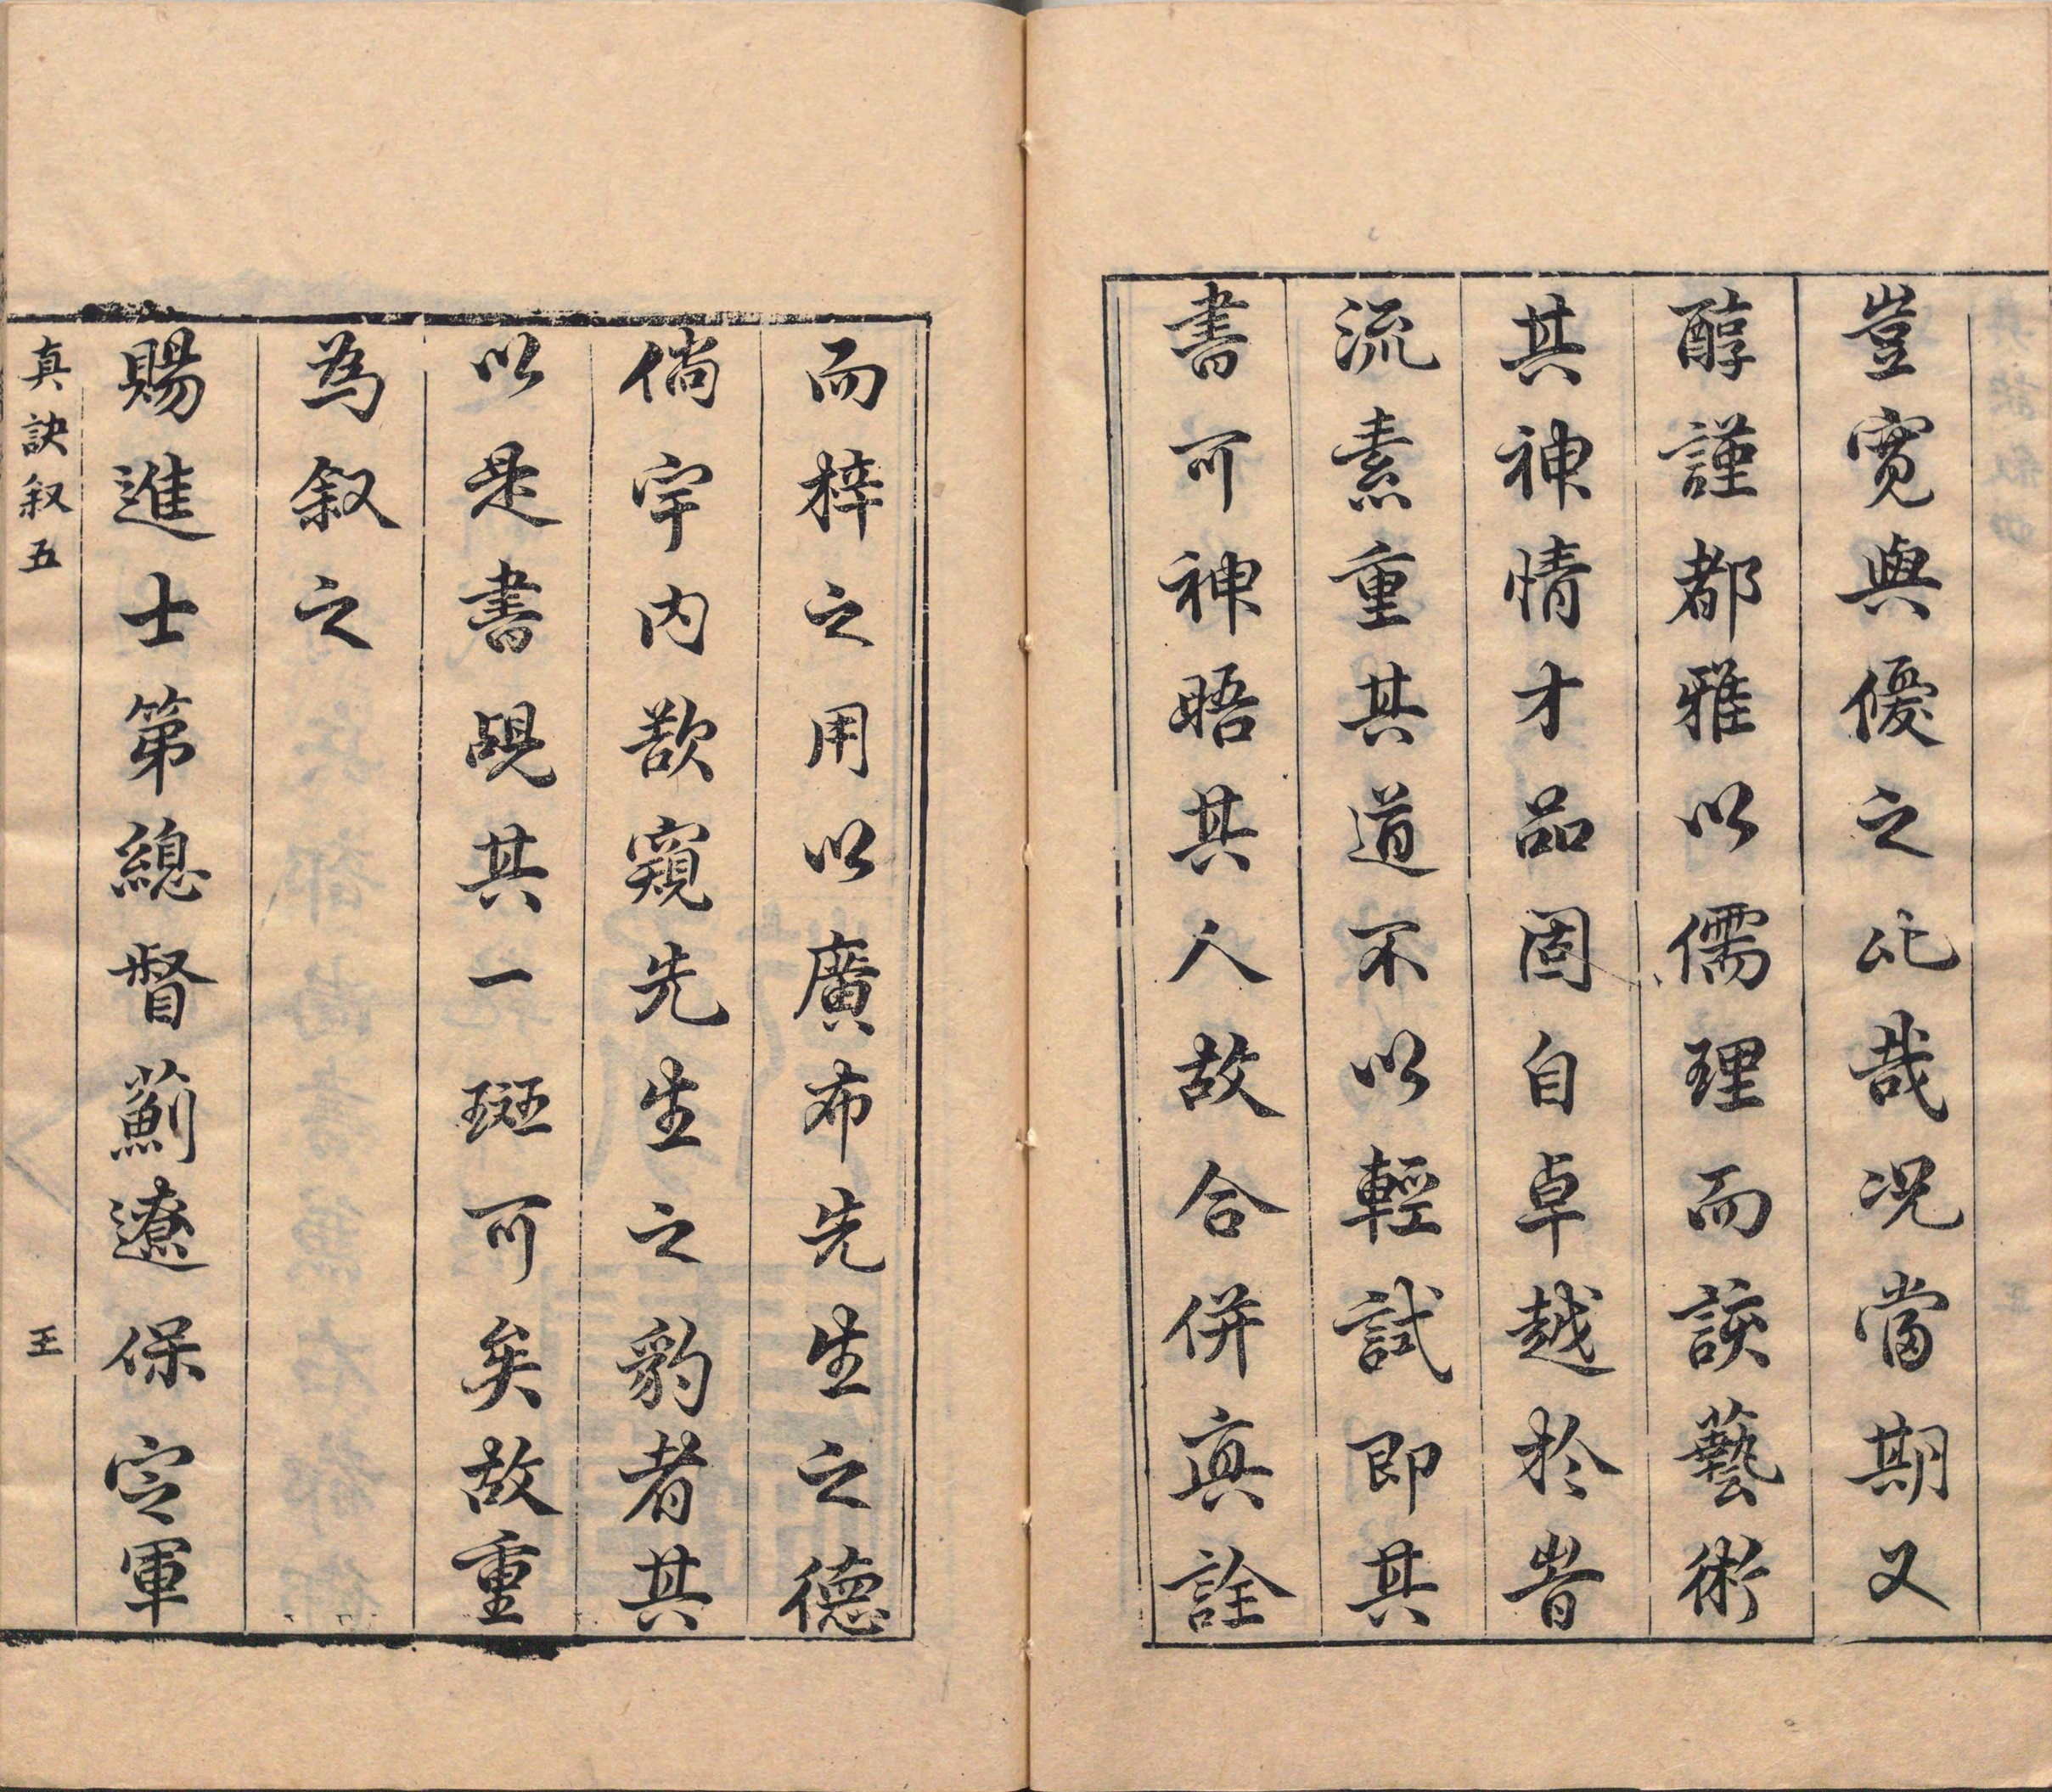 豈寛與優之比哉况當期又
醇謹都雅以儒理而該藝術
其神情才品固自卓越於皆
流素重其道不以輕試即其
書可神晤其人故合併真詮
而梓之用以廣布先生之德
倘宇内欲窺先生之豹者其
以是書覘其一斑可矣故重
為叙之
賜進士第總督薊遼保定軍
真訣叙五
王